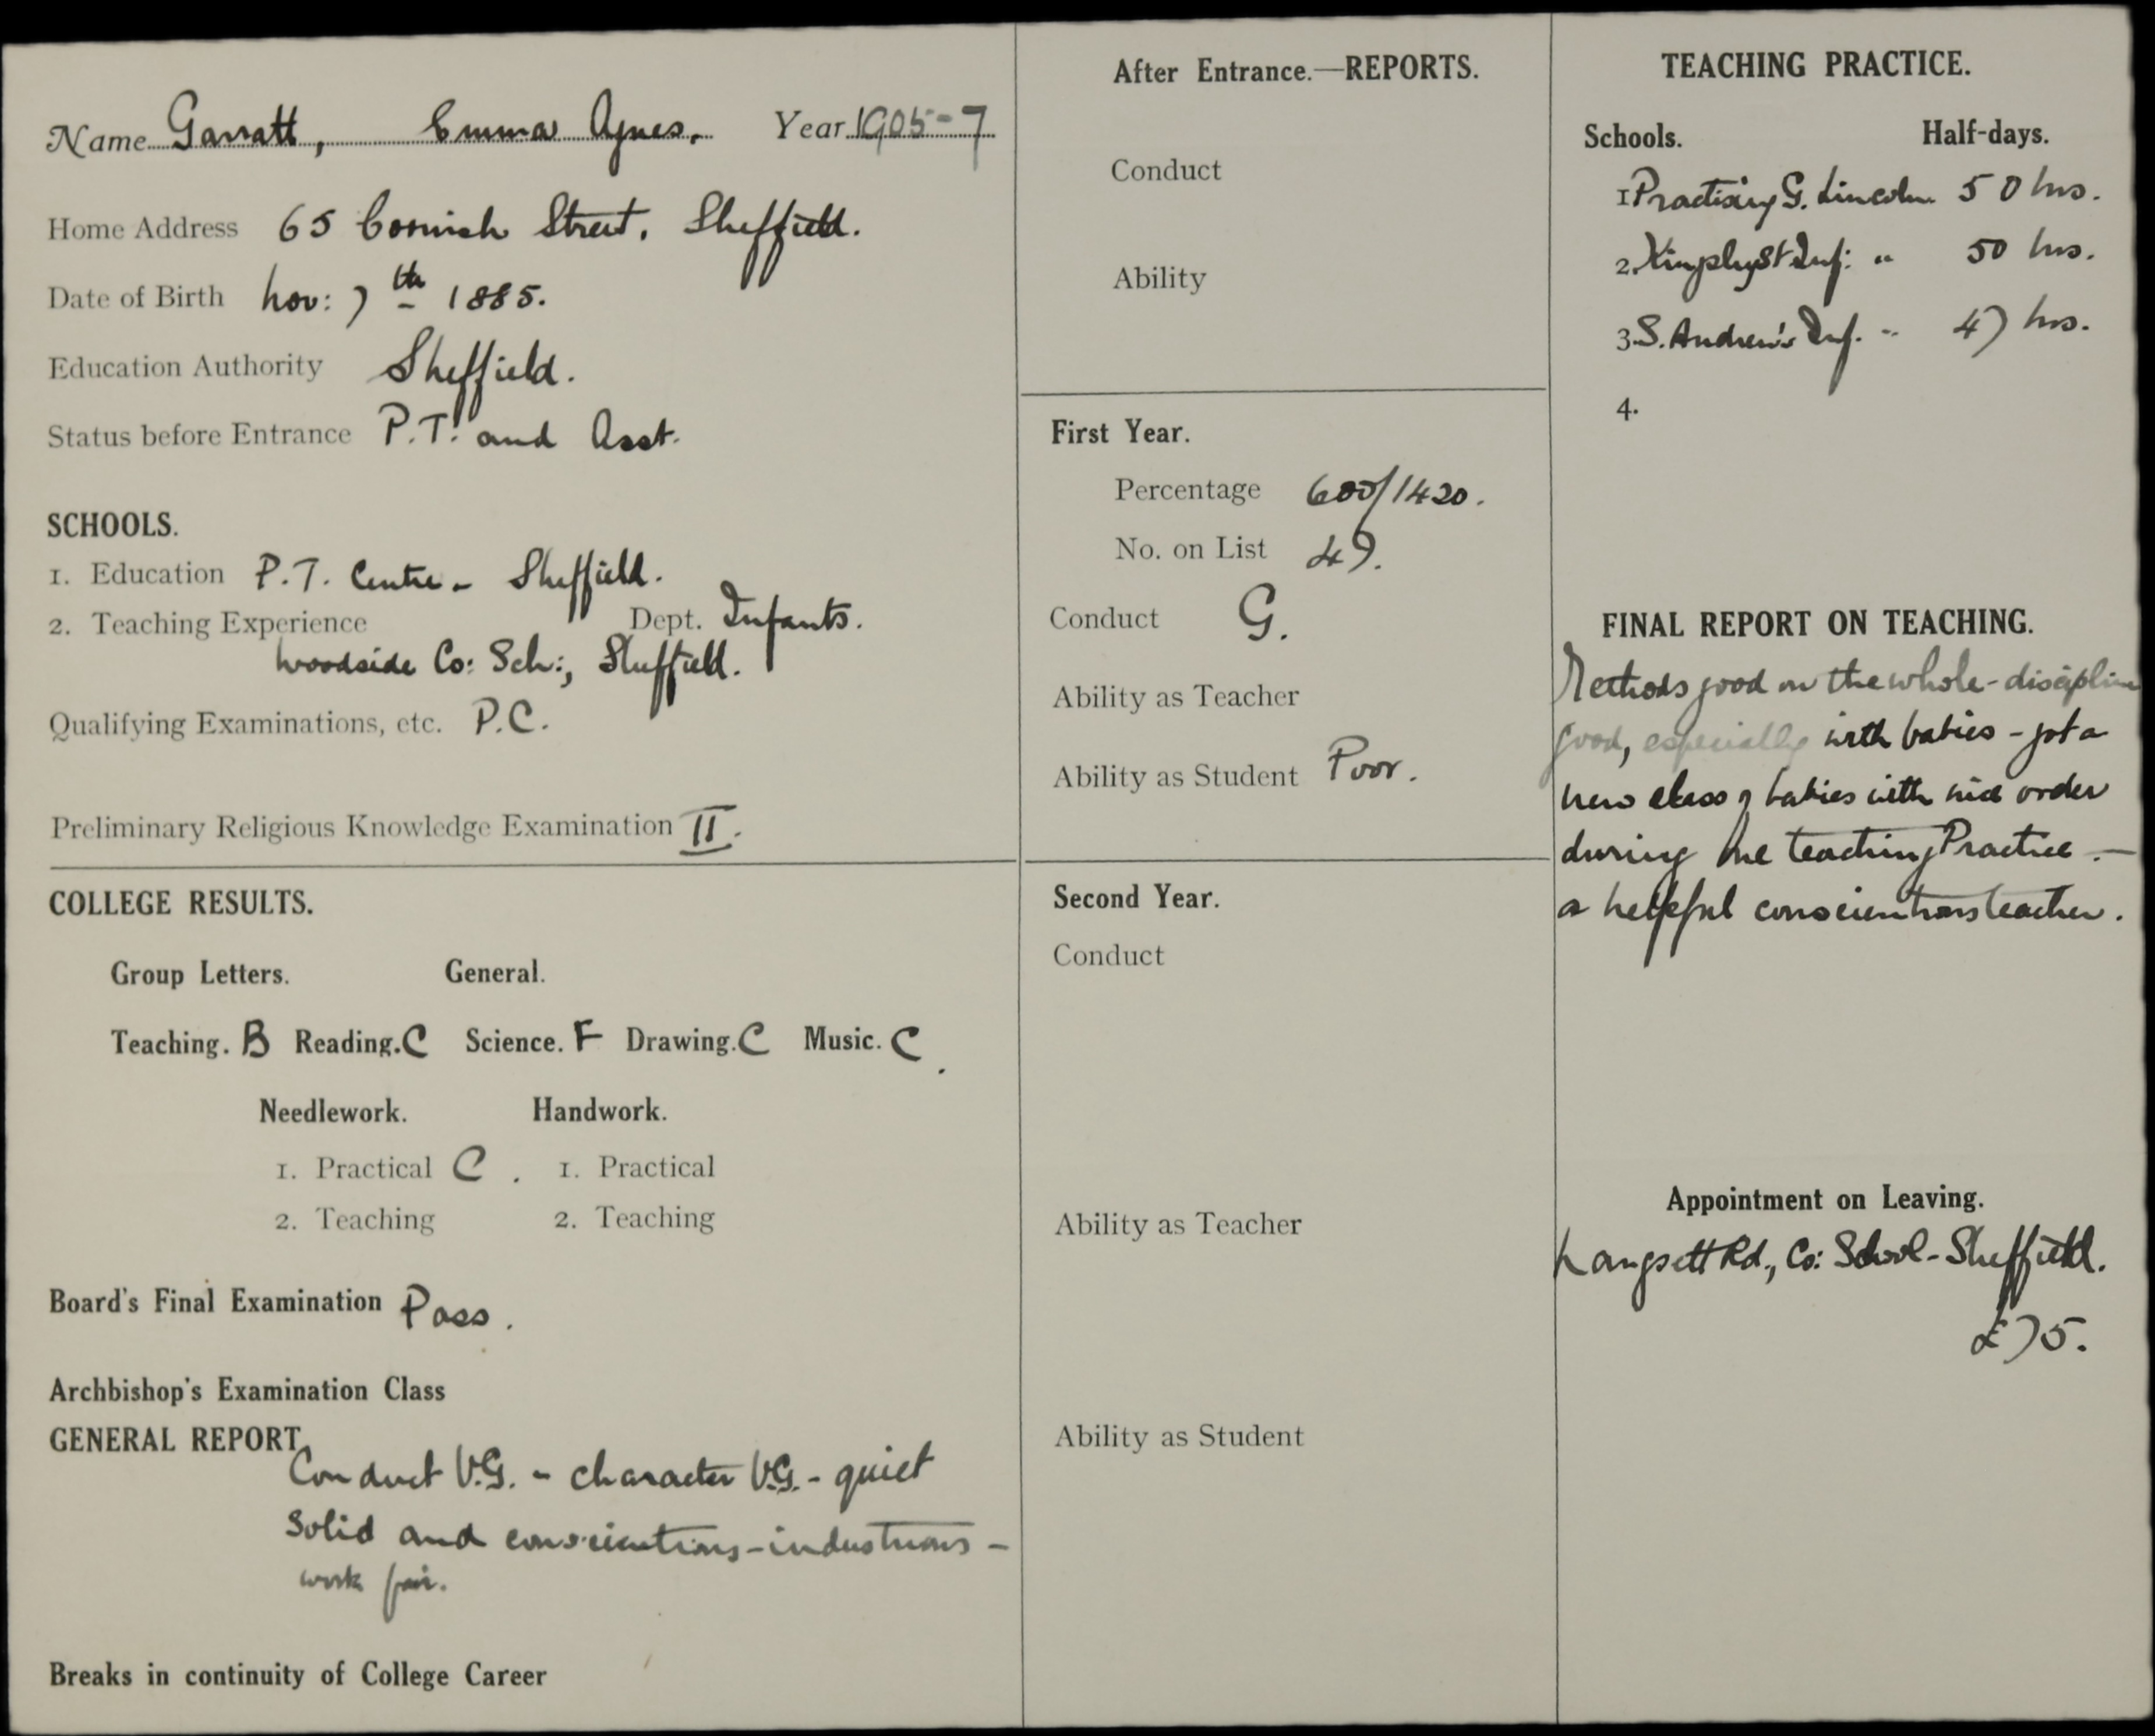 Name Garratt, Emma Agnes. Year 1905-7
Home Address 65 Cornish Street, Sheffield.
Date of Birth Nov: 7th 1885.
Education Authority Sheffield.
Status before Entrance P.T. and Asst.
SCHOOLS.
1. Education P.T. Centre - Sheffield.
2. Teaching Experience Dept. Infants.
Woodside Co: Sch:, Sheffield.
Qualifying Examinations, etc. P.C.
Preliminary Religious Knowledge Examination II.
COLLEGE RESULTS.
Group Letters. General.
Teaching. B Reading. C Science. F Drawing. C Music. C.
Needlework. Handwork.
1. Practical C. 1. Practical
2. Teaching 2. Teaching
Board's Final Examination Pass.
Archbishop's Examination Class
GENERAL REPORT.
Conduct V.G. - character V.G. - quiet
solid and conscientious - industrious -
work fair.
Breaks in continuity of College Career
After Entrance.—REPORTS.
Conduct
Ability
First Year.
Percentage 600/1420.
No. on List 49.
Conduct G.
Ability as Teacher
Ability as Student Poor.
Second Year.
Conduct
Ability as Teacher
Ability as Student
TEACHING PRACTICE.
Schools. Half-days.
1. Practising G. Lincoln 50 hrs.
2. St Inf: " 50 hrs.
3. S. Andrew's Inf. " 47 hrs.
4.
FINAL REPORT ON TEACHING.
Methods good on the whole - discipline
good, especially with babies - got a
new class of babies with nice order
during one teaching Practice. —
a helpful conscientious teacher.
Appointment on Leaving.
Langsett Rd., Co: School - Sheffield.
£75.